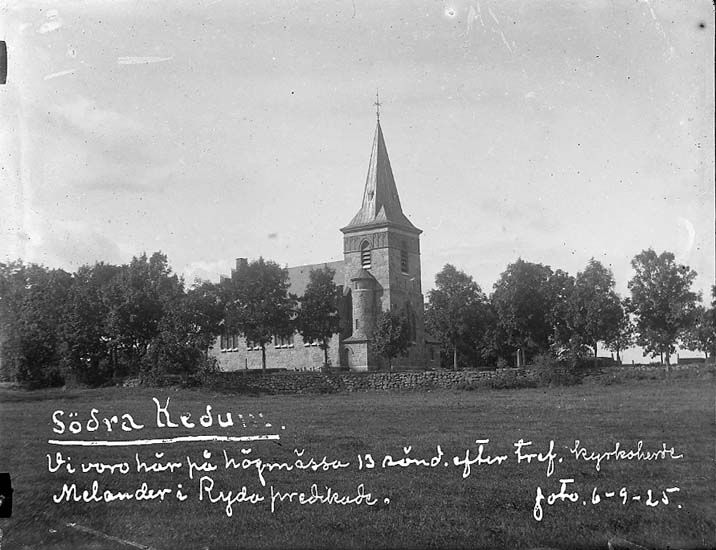 Södra Kedum.
Vi voro här på högmässa 13 sönd. efter tref. kyrkoherde
Melander i Ryda predikade.
foto. 6-9-25.